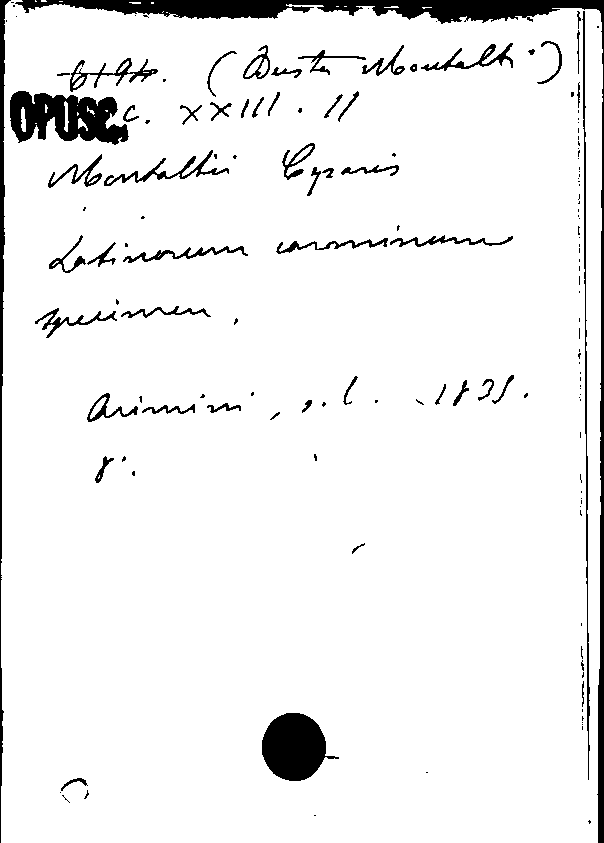 6194. (Busta Montalti)
OPUSC. C. XXIII. 11
Montaltii Cęsaris
Latinorum carminum
specimen.
Arimini, s. l. 1835.
8°.